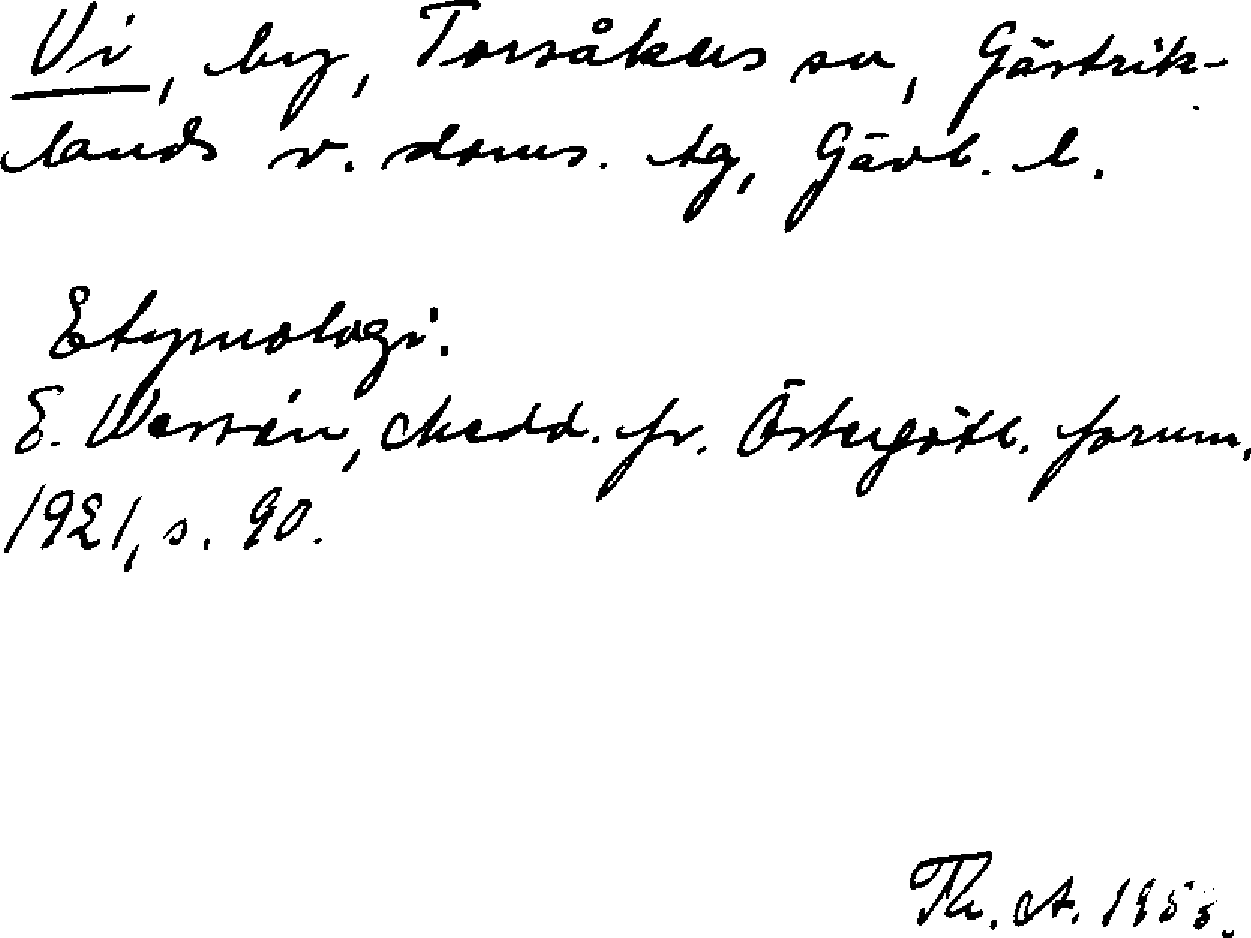 Vi, by, Torsåkers sn, Gästrik-
lands v. doms. tg, Gävl. l.
Etymologi.
E. Wessén, Medd. fr. Östergötl. fornm.
1921, s. 90.
Th. A.